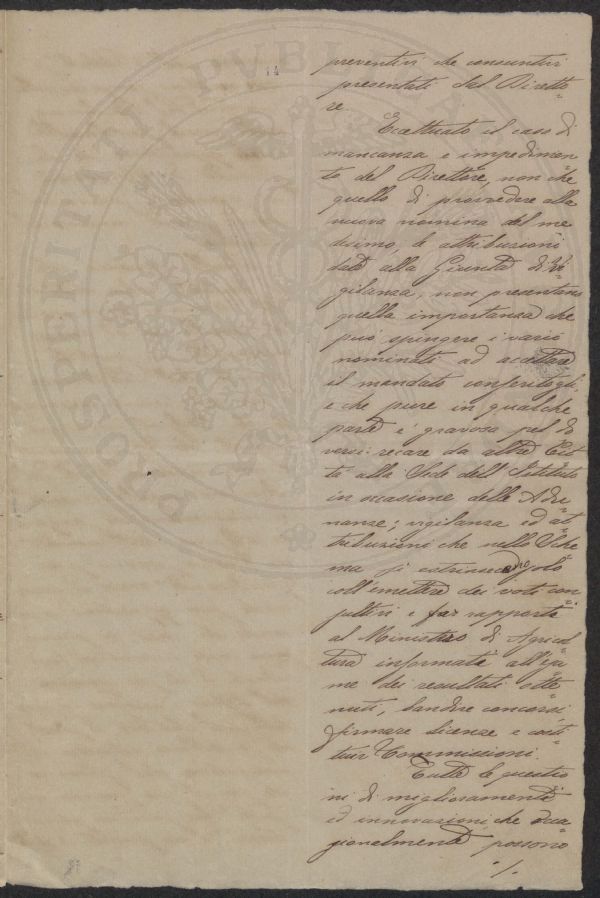 14
preventivi che consuntivi
presentati dal Diretto=
re.
Eccettuato il caso di
mancanza e impedimen
to del Direttore, non che
quello di provvedere alla
nuova nomina del me
desimo, le attribuzioni
date alla Giunta di Vi=
gilanza, non presentano
quella importanza che
può spingere i varii
nominati ad accettare
il mandato conferitogli,
e che pure in qualche
parte è gravosa pel do
versi recare da altre Cit
tà alla Sede dell'Istituto
in occasione delle Adu=
nanze; vigilanza ed at=
tribuzioni che nello Sche
ma si estrinsecano solo
coll'emettere dei voti con
sultivi e far rapporti
al Ministero di Agricol=
tura informati all'esa=
me dei resultati otte=
nuti, bandire concorsi
firmare licenze e costi
tuir Commissioni.
Tutte le questio
ni di miglioramenti
ed innovazioni che
gionalmente possono
./.
PROSPERITATI PVBLICA